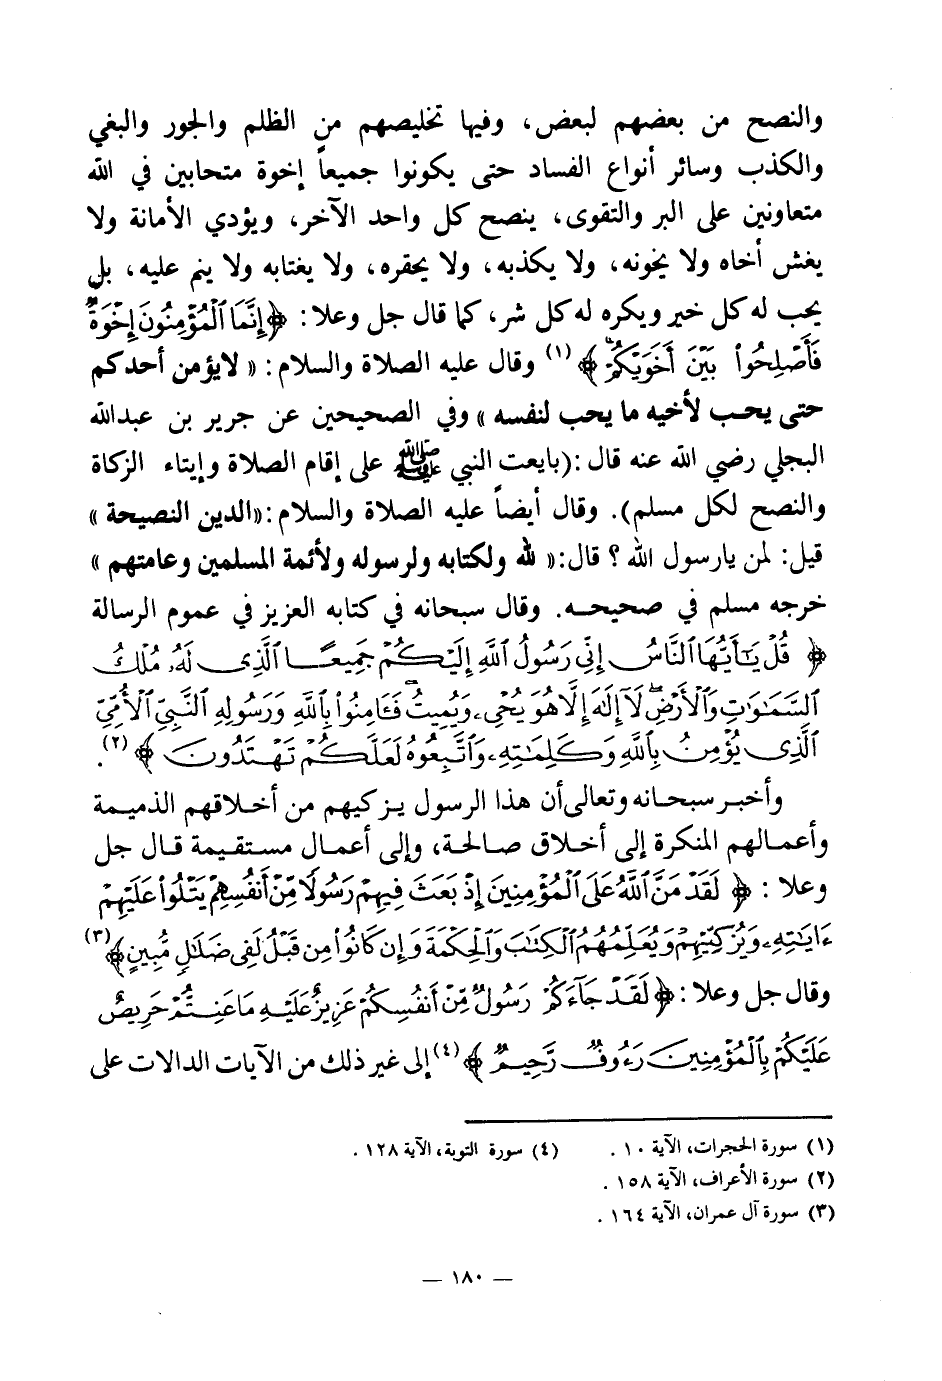 والنصح من بعضهم لبعض، وفيها تخليصهم من الظلم والجور والبغي
والكذب وسائر أنواع الفساد حتى يكونوا جميعاً إخوة متحابين في الله
متعاونين على البر والتقوى، ينصح كل واحد الآخر، ويؤدي الأمانة ولا
يغش أخاه ولا يخونه، ولا يكذبه، ولا يحقره، ولا يغتابه ولا ينم عليه، بل
يحب له كل خير ويكره له كل شر، كما قال جل وعلا: ﴿إِنَّمَا ٱلْمُؤْمِنُونَ إِخْوَةٌ
فَأَصْلِحُوا۟ بَيْنَ أَخَوَيْكُمْ ۚ﴾(١) وقال عليه الصلاة والسلام: «لايؤمن أحدكم
حتى يحب لأخيه ما يحب لنفسه» وفي الصحيحين عن جرير بن عبدالله
البجلي رضي الله عنه قال :(بايعت النبي ﷺ على إقام الصلاة وإيتاء الزكاة
والنصح لكل مسلم). وقال أيضاً عليه الصلاة والسلام:«الدين النصيحة»
قيل: لمن يارسول الله ؟ قال:« لله ولكتابه ولرسوله ولأئمة المسلمين وعامتهم»
خرجه مسلم في صحيحه. وقال سبحانه في كتابه العزيز في عموم الرسالة
﴿ قُلْ يَـٰٓأَيُّهَا ٱلنَّاسُ إِنِّى رَسُولُ ٱللَّهِ إِلَيْكُمْ جَمِيعًا ٱلَّذِى لَهُۥ مُلْكُ
ٱلسَّمَـٰوَٰتِ وَٱلْأَرْضِ ۖ لَآ إِلَـٰهَ إِلَّا هُوَ يُحْىِۦ وَيُمِيتُ ۖ فَـَٔامِنُوا۟ بِٱللَّهِ وَرَسُولِهِ ٱلنَّبِىِّ ٱلْأُمِّىِّ
ٱلَّذِى يُؤْمِنُ بِٱللَّهِ وَكَلِمَـٰتِهِۦ وَٱتَّبِعُوهُ لَعَلَّكُمْ تَهْتَدُونَ ﴾(٢).
وأخبر سبحانه وتعالى أن هذا الرسول يزكيهم من أخلاقهم الذميمة
وأعمالهم المنكرة إلى أخلاق صالحة، وإلى أعمال مستقيمة قال جل
وعلا : ﴿ لَقَدْ مَنَّ ٱللَّهُ عَلَى ٱلْمُؤْمِنِينَ إِذْ بَعَثَ فِيهِمْ رَسُولًا مِّنْ أَنفُسِهِمْ يَتْلُوا۟ عَلَيْهِمْ
ءَايَـٰتِهِۦ وَيُزَكِّيهِمْ وَيُعَلِّمُهُمُ ٱلْكِتَـٰبَ وَٱلْحِكْمَةَ وَإِن كَانُوا۟ مِن قَبْلُ لَفِى ضَلَـٰلٍ مُّبِينٍ﴾(٣)
وقال جل وعلا :﴿ لَقَدْ جَآءَكُمْ رَسُولٌ مِّنْ أَنفُسِكُمْ عَزِيزٌ عَلَيْهِ مَا عَنِتُّمْ حَرِيصٌ
عَلَيْكُم بِٱلْمُؤْمِنِينَ رَءُوفٌ رَّحِيمٌ ﴾(٤) إلى غير ذلك من الآيات الدالات على
(١) سورة الحجرات، الآية ١٠ .
(٢) سورة الأعراف، الآية ١٥٨ .
(٣) سورة آل عمران، الآية ١٦٤ .
(٤) سورة التوبة، الآية ١٢٨ .
— ١٨٠ —